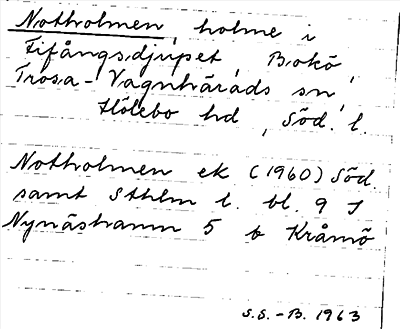 Notholmen, holme i
Fifångsdjupet, Bokö,
Trosa-Vagnhärads sn,
Hölebo hd, Söd. l.
Notholmen ek (1960) Söd.
samt Sthlm l. bl. 9 I
Nynäshamn 5 b Krämö
S.S. - B. 1963